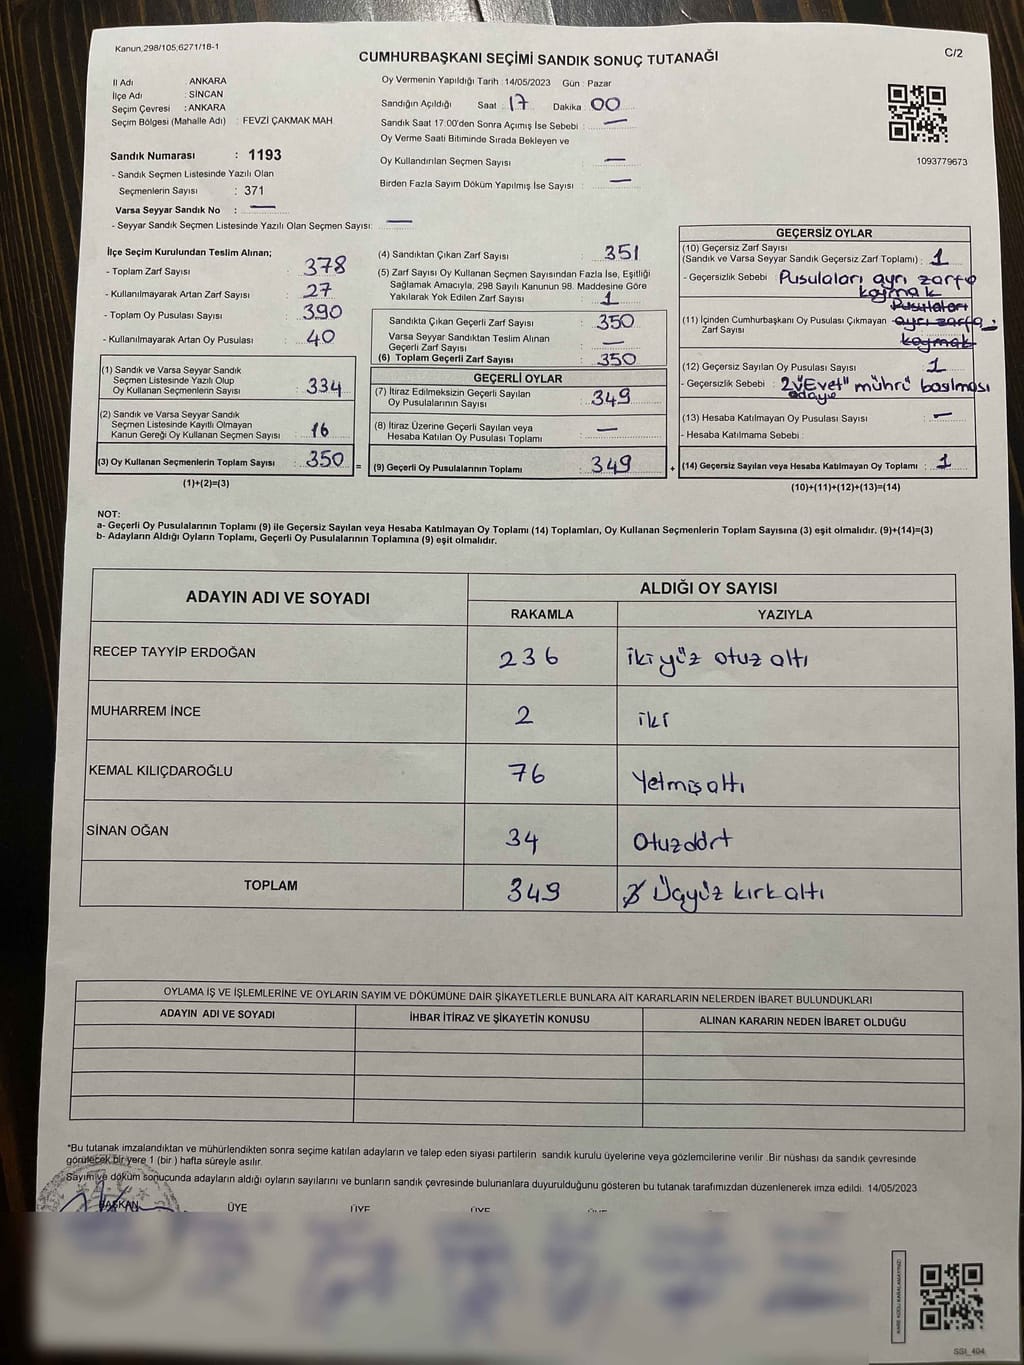 Kanun,298/105,6271/18-1
CUMHURBAŞKANI SEÇİMİ SANDIK SONUÇ TUTANAĞI
C/2
İl Adı ANKARA
İlçe Adı : SİNCAN
Seçim Çevresi : ANKARA
Seçim Bölgesi (Mahalle Adı) : FEVZİ ÇAKMAK MAH
Sandık Numarası : 1193
- Sandık Seçmen Listesinde Yazılı Olan
Seçmenlerin Sayısı : 371
Varsa Seyyar Sandık No : —
- Seyyar Sandık Seçmen Listesinde Yazılı Olan Seçmen Sayısı: —
Oy Vermenin Yapıldığı Tarih : 14/05/2023 Gün : Pazar
Sandığın Açıldığı Saat : 17 Dakika : 00
Sandık Saat 17:00'den Sonra Açımış İse Sebebi : —
Oy Verme Saati Bitiminde Sırada Bekleyen ve
Oy Kullandırılan Seçmen Sayısı —
Birden Fazla Sayım Döküm Yapılmış İse Sayısı : —
1093779673
İlçe Seçim Kurulundan Teslim Alınan;
- Toplam Zarf Sayısı : 378
- Kullanılmayarak Artan Zarf Sayısı : 27
- Toplam Oy Pusulası Sayısı : 390
- Kullanılmayarak Artan Oy Pusulası : 40
(1) Sandık ve Varsa Seyyar Sandık
Seçmen Listesinde Yazılı Olup
Oy Kullanan Seçmenlerin Sayısı : 334
(2) Sandık ve Varsa Seyyar Sandık
Seçmen Listesinde Kayıtlı Olmayan
Kanun Gereği Oy Kullanan Seçmen Sayısı : 16
(3) Oy Kullanan Seçmenlerin Toplam Sayısı : 350
(1)+(2)=(3)
=
(4) Sandıktan Çıkan Zarf Sayısı : 351
(5) Zarf Sayısı Oy Kullanan Seçmen Sayısından Fazla İse, Eşitliği
Sağlamak Amacıyla, 298 Sayılı Kanunun 98. Maddesine Göre
Yakılarak Yok Edilen Zarf Sayısı : 1
Sandıkta Çıkan Geçerli Zarf Sayısı : 350
Varsa Seyyar Sandıktan Teslim Alınan
Geçerli Zarf Sayısı : —
(6) Toplam Geçerli Zarf Sayısı : 350
GEÇERLİ OYLAR
(7) İtiraz Edilmeksizin Geçerli Sayılan
Oy Pusulalarının Sayısı : 349
(8) İtiraz Üzerine Geçerli Sayılan veya
Hesaba Katılan Oy Pusulası Toplamı : —
(9) Geçerli Oy Pusulalarının Toplamı : 349
+
GEÇERSİZ OYLAR
(10) Geçersiz Zarf Sayısı
(Sandık ve Varsa Seyyar Sandık Geçersiz Zarf Toplamı) : 1
- Geçersizlik Sebebi : Pusulaları ayrı zarfa
koymak
Pusulaları
(11) İçinden Cumhurbaşkanı Oy Pusulası Çıkmayan ayrı zarfa
Zarf Sayısı koymak
(12) Geçersiz Sayılan Oy Pusulası Sayısı : 1
- Geçersizlik Sebebi : 2 "Evet" mührü basılması
adaya
(13) Hesaba Katılmayan Oy Pusulası Sayısı : —
- Hesaba Katılmama Sebebi :
(14) Geçersiz Sayılan veya Hesaba Katılmayan Oy Toplamı : 1
(10)+(11)+(12)+(13)=(14)
NOT:
a- Geçerli Oy Pusulalarının Toplamı (9) ile Geçersiz Sayılan veya Hesaba Katılmayan Oy Toplamı (14) Toplamları, Oy Kullanan Seçmenlerin Toplam Sayısına (3) eşit olmalıdır. (9)+(14)=(3)
b- Adayların Aldığı Oyların Toplamı, Geçerli Oy Pusulalarının Toplamına (9) eşit olmalıdır.
ADAYIN ADI VE SOYADI
ALDIĞI OY SAYISI
RAKAMLA YAZIYLA
RECEP TAYYİP ERDOĞAN 236 iki yüz otuz altı
MUHARREM İNCE 2 iki
KEMAL KILIÇDAROĞLU 76 Yetmişaltı
SİNAN OĞAN 34 Otuzdört
TOPLAM 349 Üçyüz kırkaltı
OYLAMA İŞ VE İŞLEMLERİNE VE OYLARIN SAYIM VE DÖKÜMÜNE DAİR ŞİKAYETLERLE BUNLARA AİT KARARLARIN NELERDEN İBARET BULUNDUKLARI
ADAYIN ADI VE SOYADI İHBAR İTİRAZ VE ŞİKAYETİN KONUSU ALINAN KARARIN NEDEN İBARET OLDUĞU
*Bu tutanak imzalandıktan ve mühürlendikten sonra seçime katılan adayların ve talep eden siyasi partilerin sandık kurulu üyelerine veya gözlemcilerine verilir .Bir nüshası da sandık çevresinde
görülecek bir yere 1 (bir ) hafta süreyle asılır.
Sayım ve döküm sonucunda adayların aldığı oyların sayılarını ve bunların sandık çevresinde bulunanlara duyurulduğunu gösteren bu tutanak tarafımızdan düzenlenerek imza edildi. 14/05/2023
BAŞKAN ÜYE ÜYE ÜYE
SSI_404